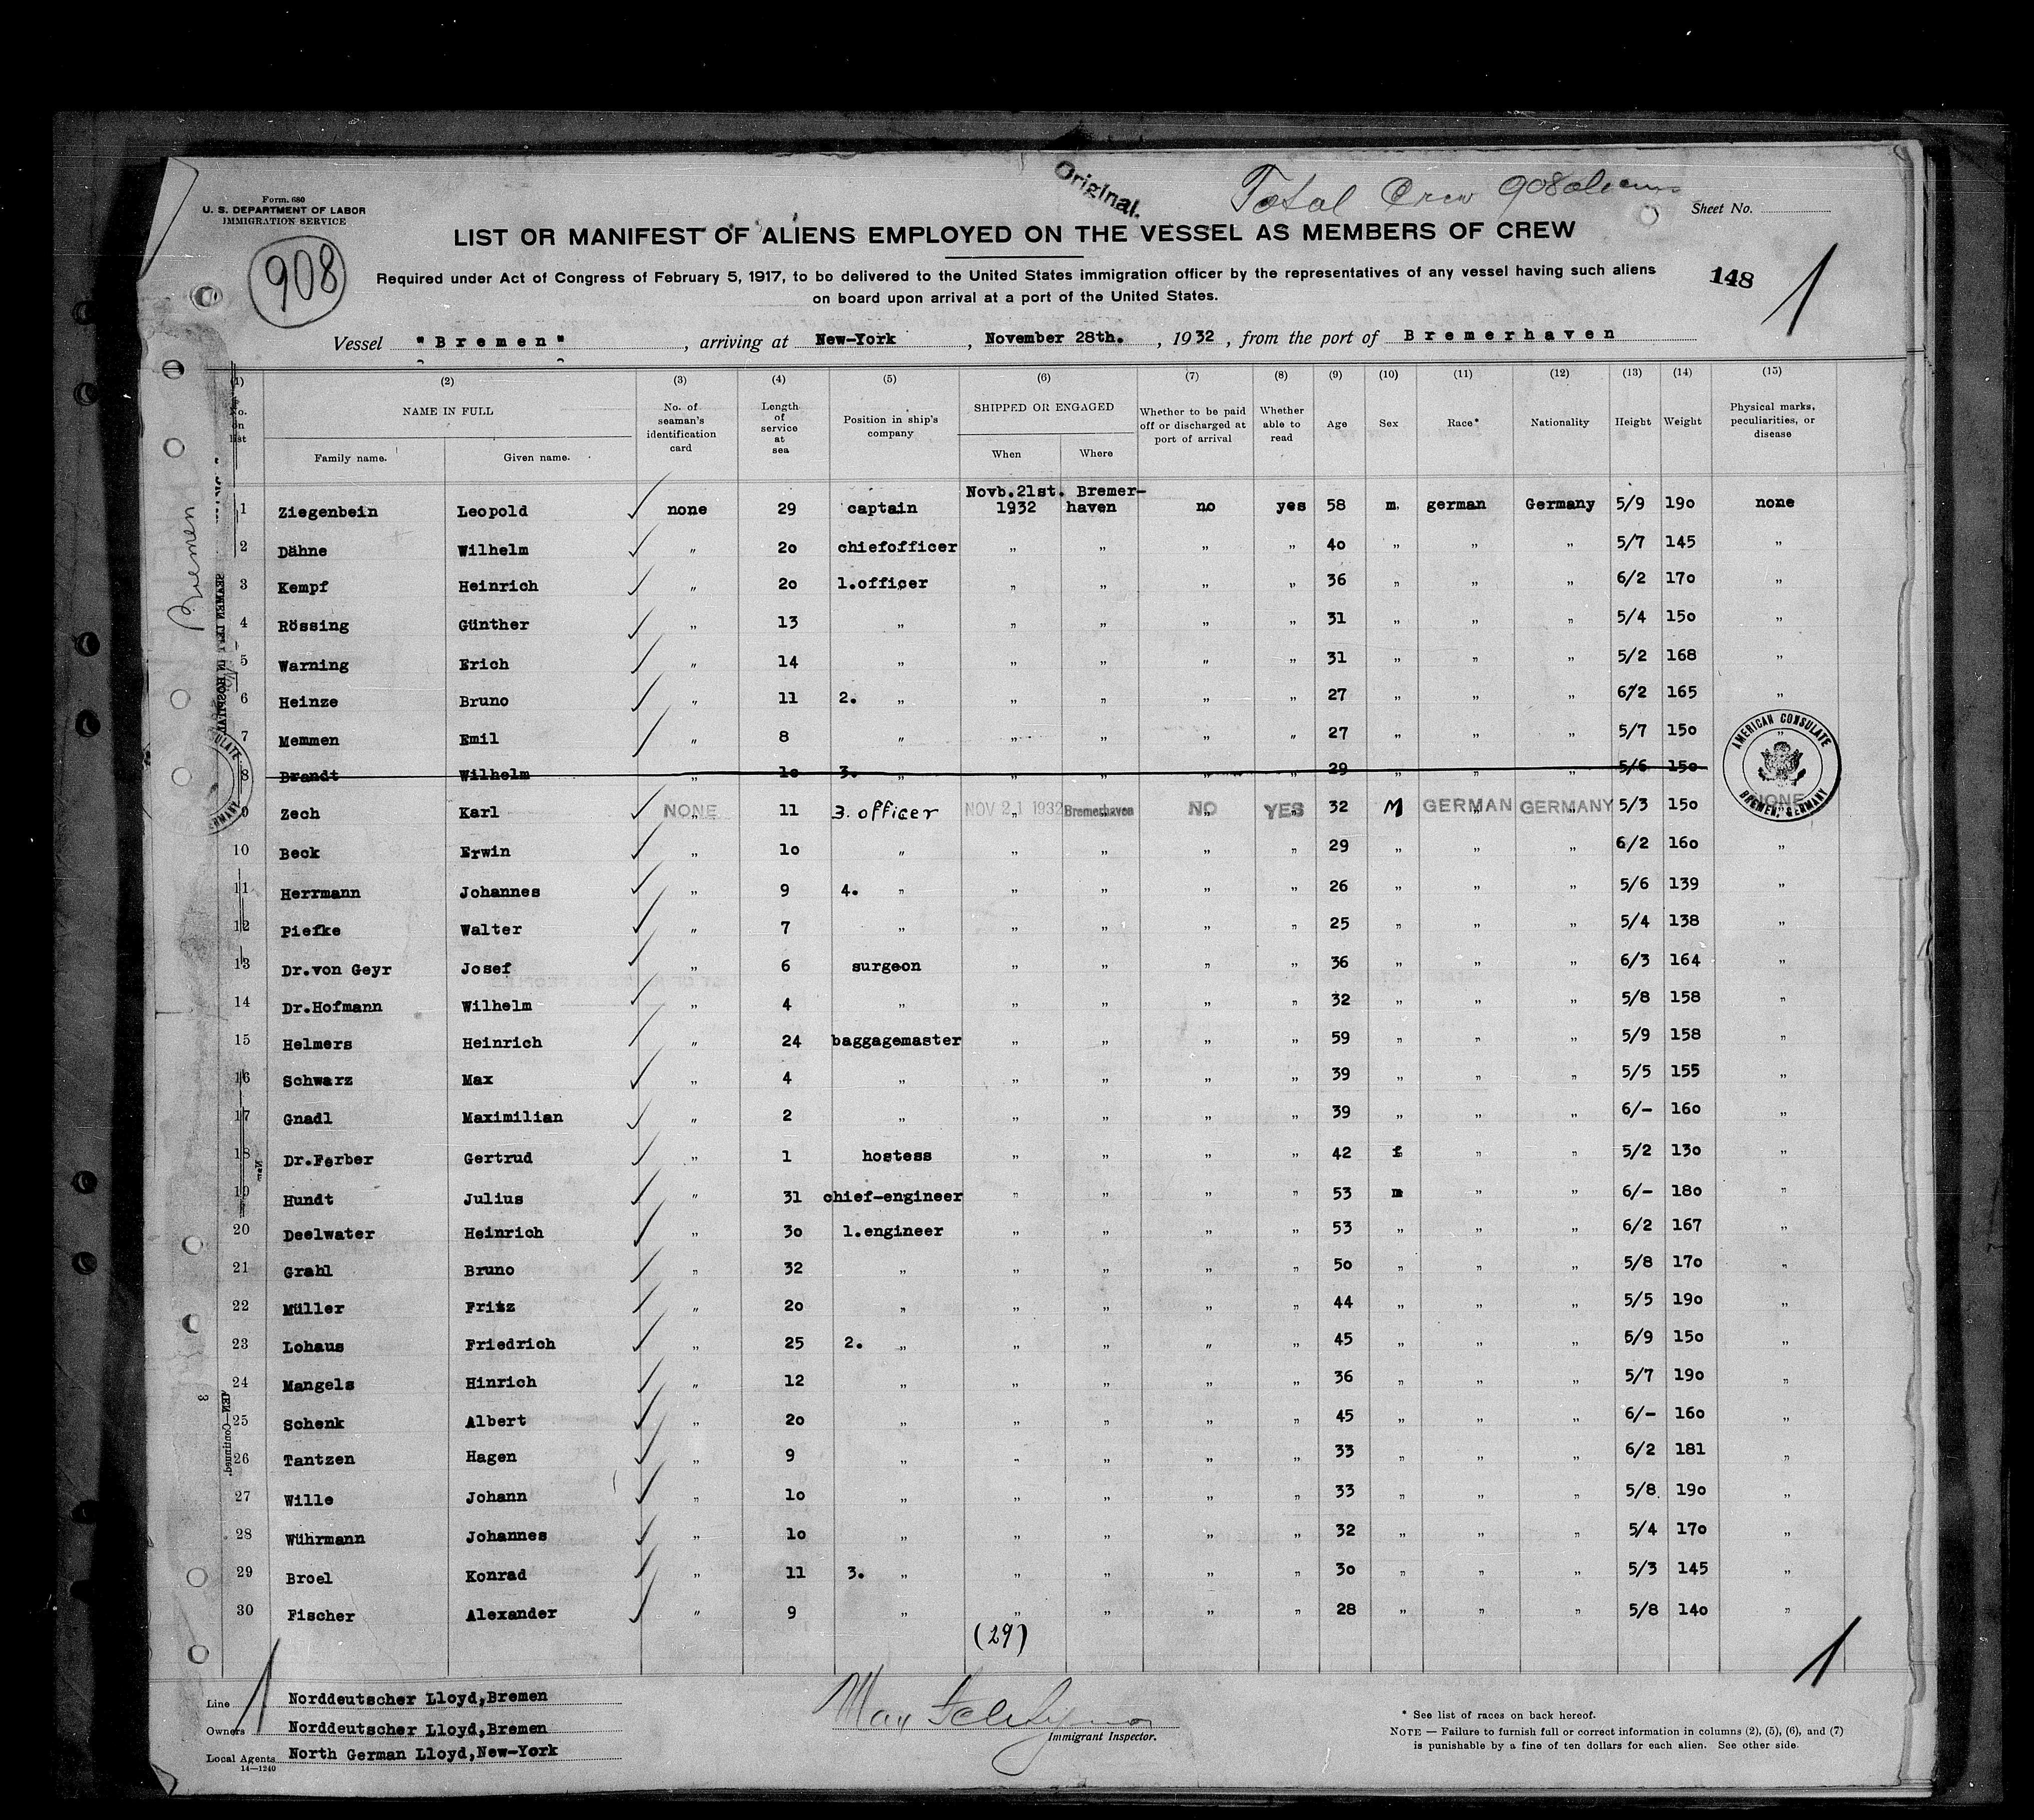 Original.
Total Crew 908 aliens
Form 680
U. S. DEPARTMENT OF LABOR
IMMIGRATION SERVICE
Sheet No.
908
LIST OR MANIFEST OF ALIENS EMPLOYED ON THE VESSEL AS MEMBERS OF CREW
Required under Act of Congress of February 5, 1917, to be delivered to the United States immigration officer by the representatives of any vessel having such aliens
on board upon arrival at a port of the United States.
148 1
Vessel "Bremen", arriving at New-York, November 28th., 1932, from the port of Bremerhaven
(1) (2) (3) (4) (5) (6) (7) (8) (9) (10) (11) (12) (13) (14) (15)
No. on list
NAME IN FULL
Family name. Given name.
No. of seaman's identification card
Length of service at sea
Position in ship's company
SHIPPED OR ENGAGED
When Where
Whether to be paid off or discharged at port of arrival
Whether able to read
Age Sex Race* Nationality Height Weight
Physical marks, peculiarities, or disease
1 Ziegenbein Leopold none 29 captain Novb.21st. 1932 Bremer-haven no yes 58 m. german Germany 5/9 190 none
2 Dähne Wilhelm " 20 chiefofficer " " " " 40 " " " 5/7 145 "
3 Kempf Heinrich " 20 1.officer " " " " 36 " " " 6/2 170 "
4 Rössing Günther " 13 " " " " " 31 " " " 5/4 150 "
5 Warning Erich " 14 " " " " " 31 " " " 5/2 168 "
6 Heinze Bruno " 11 2. " " " " " 27 " " " 6/2 165 "
7 Memmen Emil " 8 " " " " " 27 " " " 5/7 150 "
8 Brandt Wilhelm " 10 3. " " " " " 29 " " " 5/6 150
9 Zech Karl NONE 11 3. officer NOV 21 1932 Bremerhaven NO YES 32 M GERMAN GERMANY 5/3 150 NONE
10 Beck Erwin " 10 " " " " " 29 " " " 6/2 160 "
11 Herrmann Johannes " 9 4. " " " " " 26 " " " 5/6 139 "
12 Piefke Walter " 7 " " " " " 25 " " " 5/4 138 "
13 Dr.von Geyr Josef " 6 surgeon " " " " 36 " " " 6/3 164 "
14 Dr.Hofmann Wilhelm " 4 " " " " " 32 " " " 5/8 158 "
15 Helmers Heinrich " 24 baggagemaster " " " " 59 " " " 5/9 158 "
16 Schwarz Max " 4 " " " " " 39 " " " 5/5 155 "
17 Gnadl Maximilian " 2 " " " " " 39 " " " 6/- 160 "
18 Dr.Ferber Gertrud " 1 hostess " " " " 42 f " " 5/2 130 "
19 Hundt Julius " 31 chief-engineer " " " " 53 m " " 6/- 180 "
20 Deelwater Heinrich " 30 1.engineer " " " " 53 " " " 6/2 167 "
21 Grahl Bruno " 32 " " " " " 50 " " " 5/8 170 "
22 Müller Fritz " 20 " " " " " 44 " " " 5/5 190 "
23 Lohaus Friedrich " 25 2. " " " " " 45 " " " 5/9 150 "
24 Mangels Hinrich " 12 " " " " " 36 " " " 5/7 190 "
25 Schenk Albert " 20 " " " " " 45 " " " 6/- 160 "
26 Tantzen Hagen " 9 " " " " " 33 " " " 6/2 181 "
27 Wille Johann " 10 " " " " " 33 " " " 5/8 190 "
28 Wührmann Johannes " 10 " " " " " 32 " " " 5/4 170 "
29 Broel Konrad " 11 3. " " " " " 30 " " " 5/3 145 "
30 Fischer Alexander " 9 " " " " " 28 " " " 5/8 140 "
AMERICAN CONSULATE
BREMEN, GERMANY
Bremen
(29)
Line Norddeutscher Lloyd,Bremen
Owners Norddeutscher Lloyd,Bremen
Local Agents North German Lloyd,New-York
14—1240
Max
Immigrant Inspector.
* See list of races on back hereof.
NOTE — Failure to furnish full or correct information in columns (2), (5), (6), and (7)
is punishable by a fine of ten dollars for each alien. See other side.